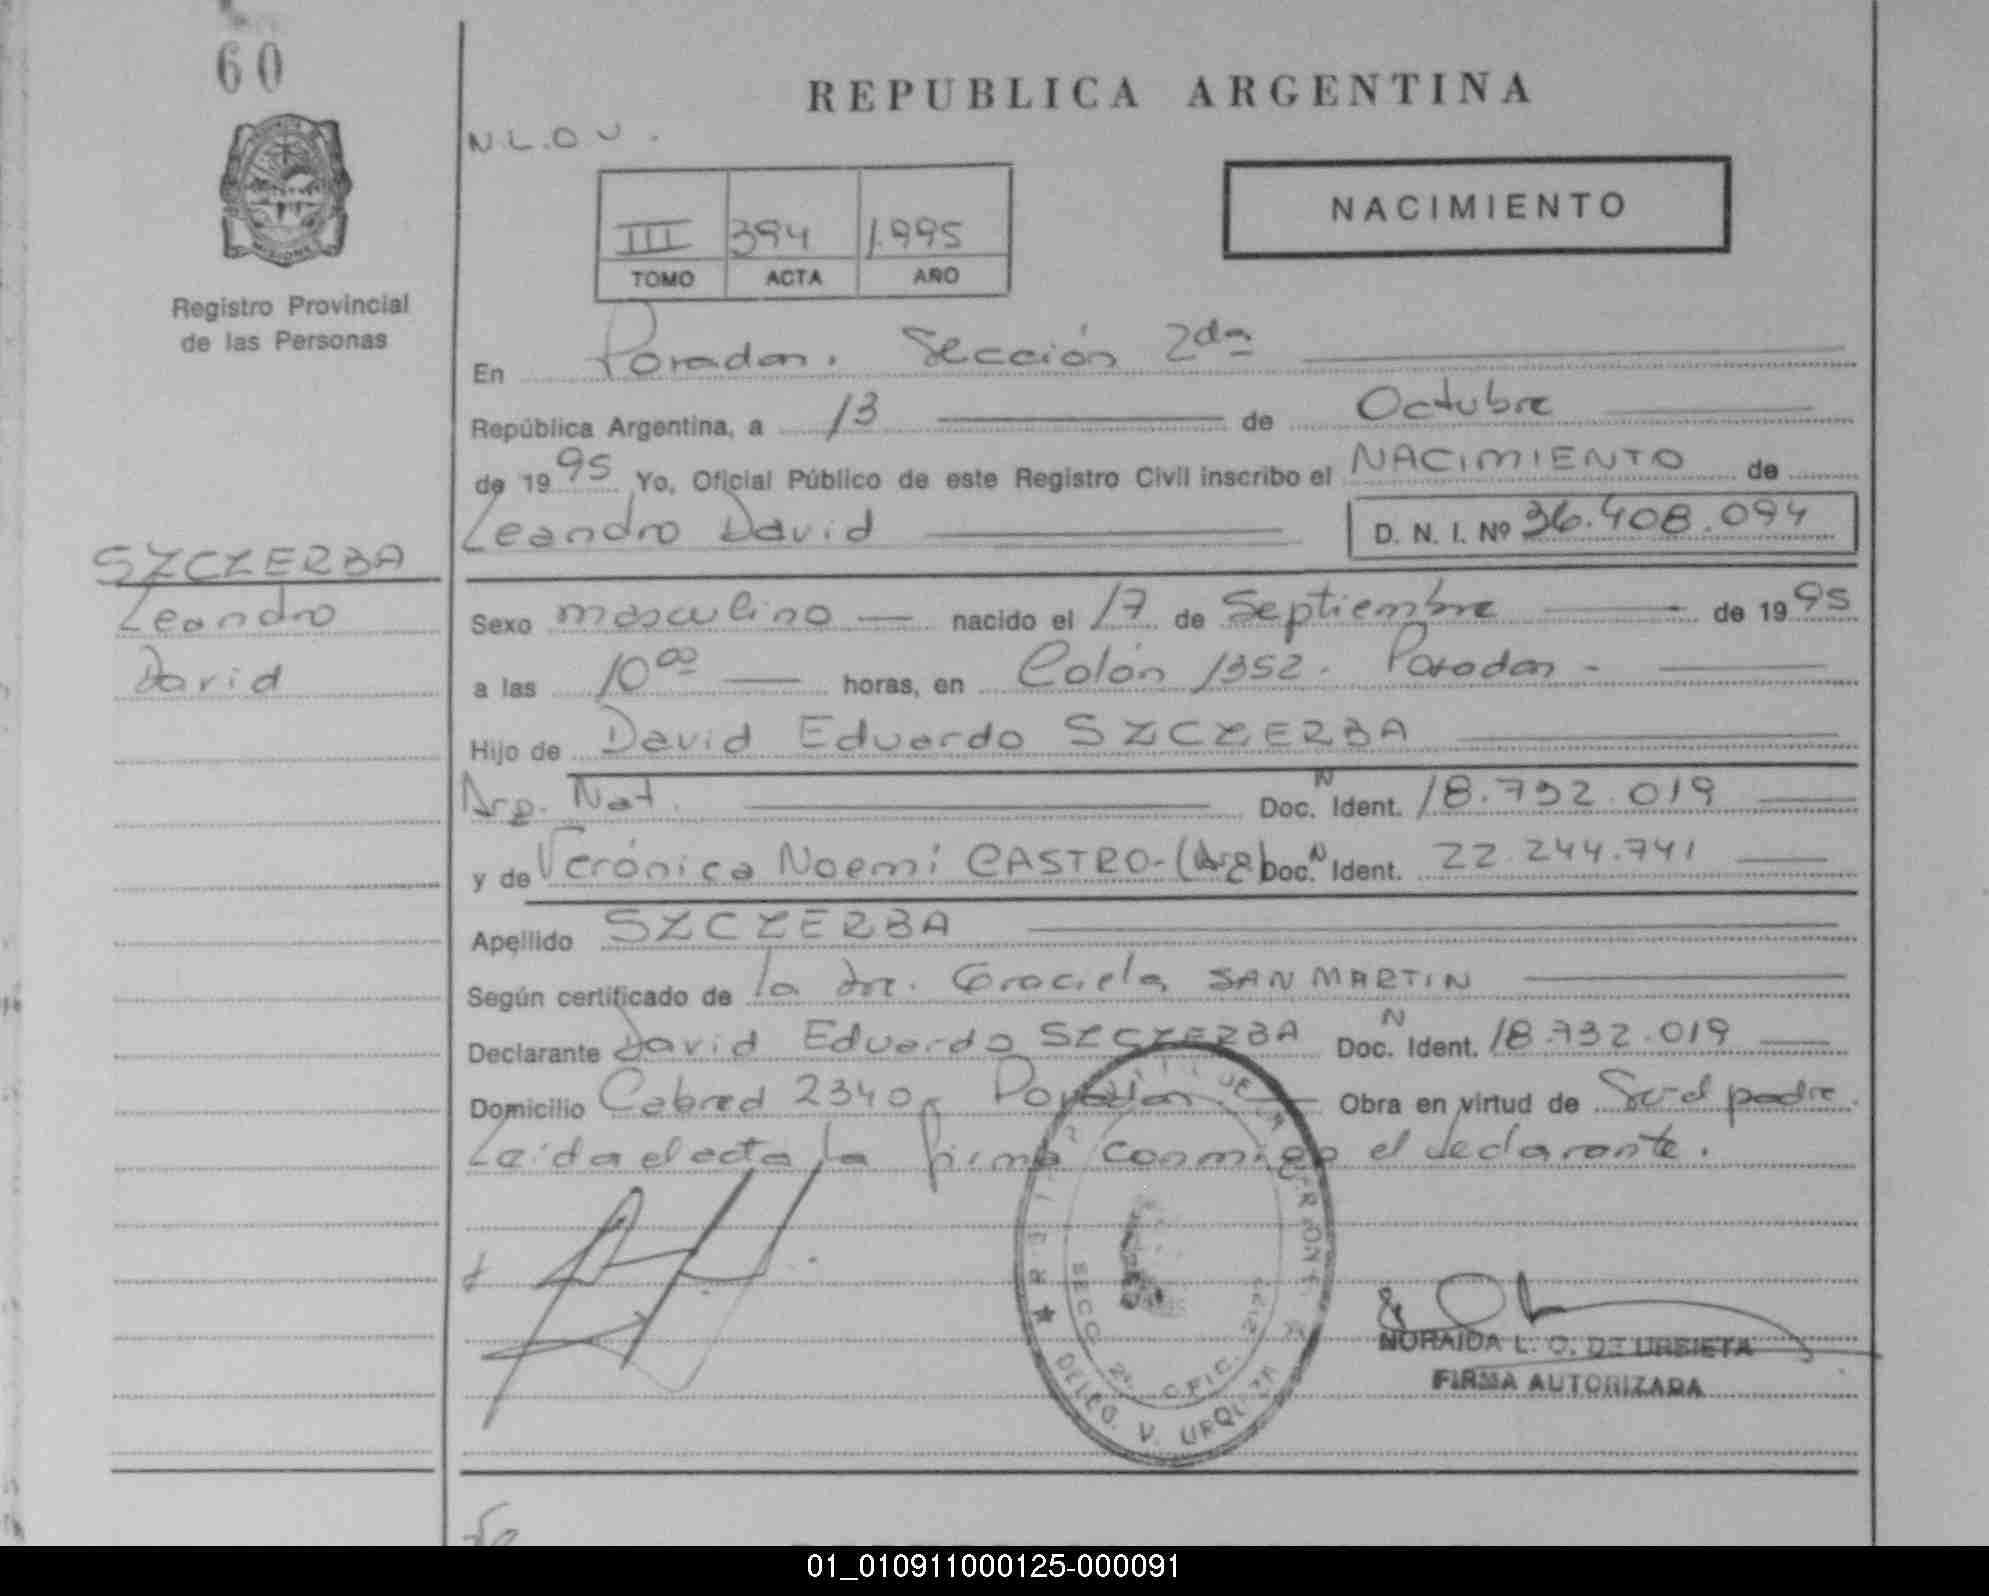 60
REPUBLICA ARGENTINA
N.L.O U.
NACIMIENTO
III 394 1.995
TOMO ACTA AÑO
Registro Provincial
de las Personas
En Posadas. Sección 2da
República Argentina, a 13 de Octubre
de 1995 Yo, Oficial Público de este Registro Civil inscribo el NACIMIENTO de
Leandro David D. N. I. Nº 36.408.094
SZCZERBA
Leandro
David
Sexo masculino nacido el 17 de Septiembre de 1995
a las 10 00 horas, en Colón 1352. Posadas -
Hijo de David Eduardo SZCZERBA
Arg. Nat. Doc. N Ident. 18.792.019
y de Verónica Noemí CASTRO-(Arg) Doc. N Ident. 22.244.741
Apellido SZCZERBA
Según certificado de la dra. Graciela SAN MARTIN
Declarante David Eduardo SZCZERBA Doc. N Ident. 18.792.019
Domicilio Cabred 2340, Posadas. Obra en virtud de Ser el padre.
Leída el acta, la firma conmigo el declarante.
SECC. 2ª OFIC.
DELEG. V. URQUIZA
NORAIDA L. O. DE URBIETA
FIRMA AUTORIZADA
01_010911000125-000091